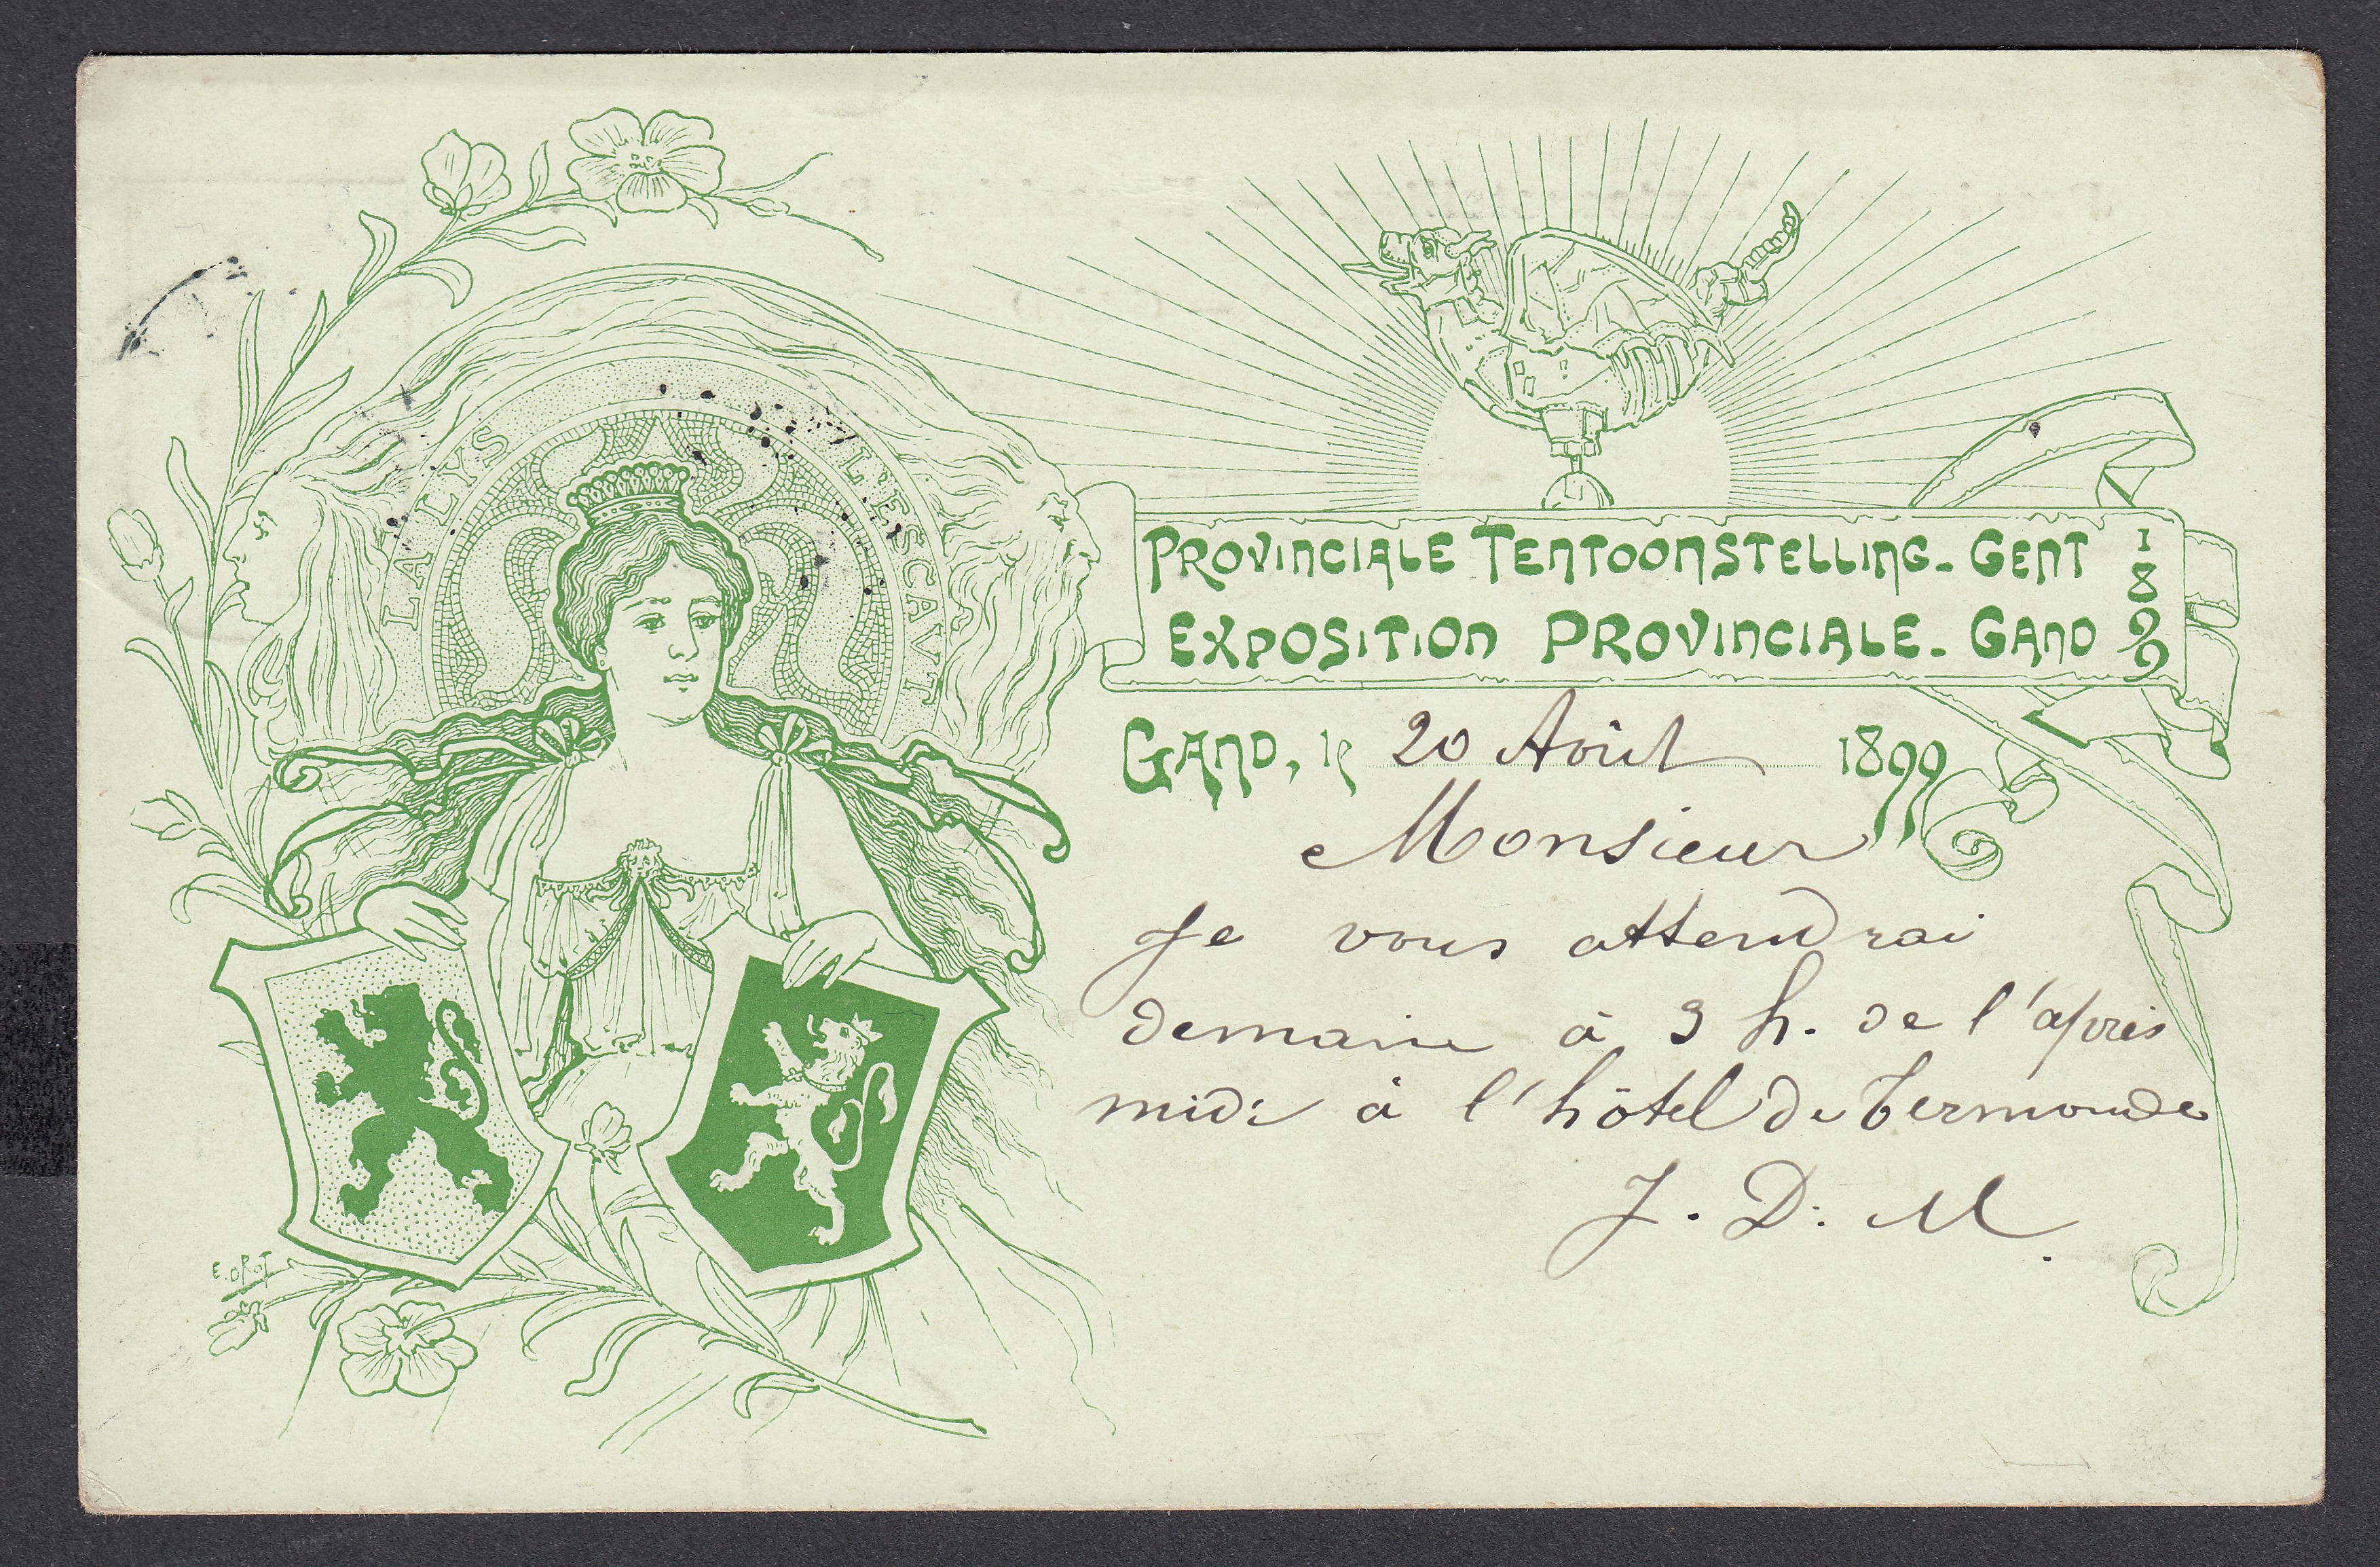 LA LYS
L'ESCAVT
PROVINCIALE TENTOONSTELLING - GENT
EXPOSITION PROVINCIALE - GAND
1899
GAND, le 20 Août 1899
Monsieur
Je vous attendrai
demain à 3 h. de l'après
midi à l'hôtel de Termonde
J. D. M.